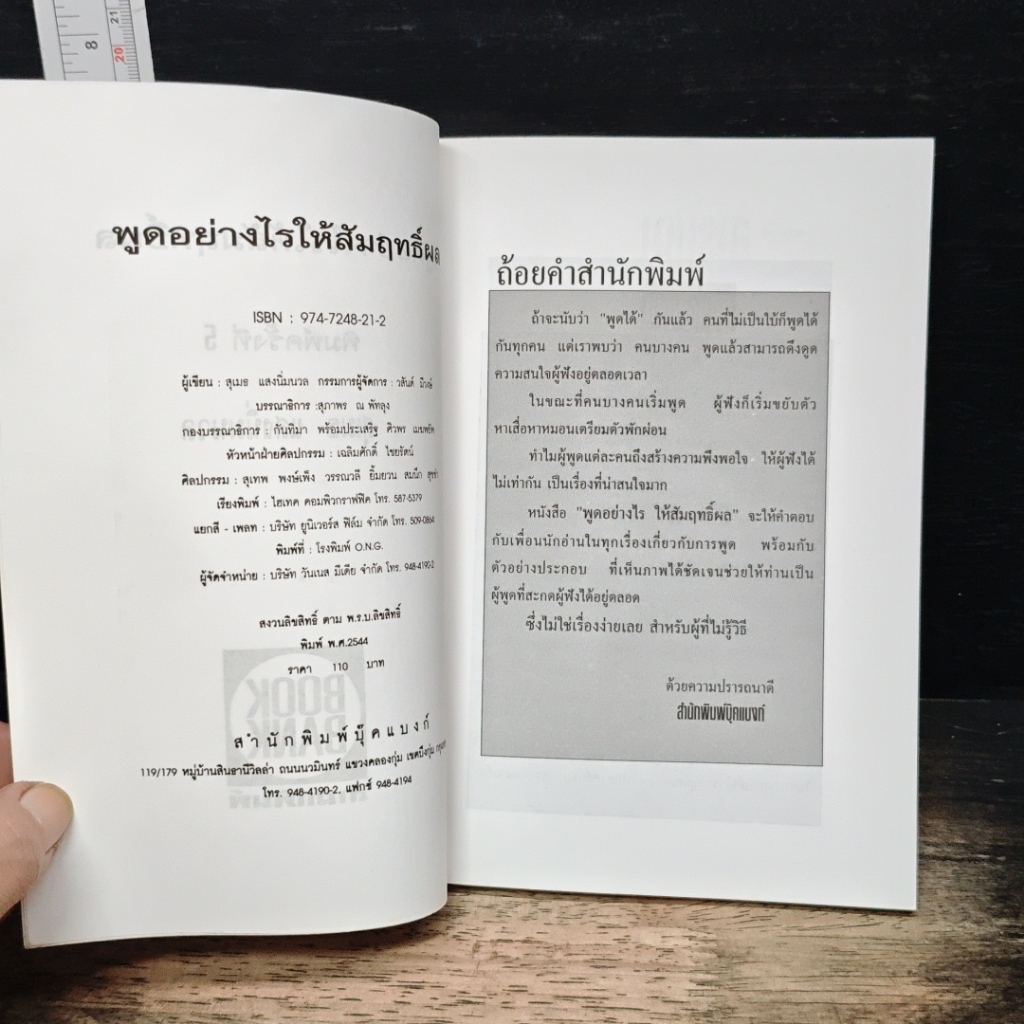 8
21
20
พูดอย่างไรให้สัมฤทธิ์ผล
ISBN : 974-7248-21-2
ผู้เขียน : สุเมธ แสงนิ่มนวล กรรมการผู้จัดการ : วสันต์
บรรณาธิการ :สุภาพร ณ พัทลุง
กองบรรณาธิการ : กันทิมา พร้อมประเสริฐ ศิวพร
หัวหน้าฝ่ายศิลปกรรม : เฉลิมศักดิ์ ไชยรัตน์
ศิลปกรรม : สุเทพ พงษ์เพ็ง วรรณวลี ยิ้มยวน สมนึก
เรียงพิมพ์ : ไฮเทค คอมพิวกราฟฟิค โทร. 587-5379
แยกสี - เพลท : บริษัท ยูนิเวอร์ส ฟิล์ม จำกัด โทร. 509-0864
พิมพ์ที่ : โรงพิมพ์ O.N.G.
ผู้จัดจำหน่าย : บริษัท วันเนส มีเดีย จำกัด โทร. 948-4190-2
สงวนลิขสิทธิ์ ตาม พ.ร.บ.ลิขสิทธิ์
พิมพ์ พ.ศ.2544
ราคา 110 บาท
สำนักพิมพ์บุ๊คแบงก์
119/179 หมู่บ้านสินธานีวิลล่า ถนนนวมินทร์ แขวงคลองกุ่ม เขตบึงกุ่ม
โทร. 948-4190-2, แฟกซ์ 948-4194
ถ้อยคำสำนักพิมพ์
ถ้าจะนับว่า "พูดได้" กันแล้ว คนที่ไม่เป็นใบ้ก็พูดได้
กันทุกคน แต่เราพบว่า คนบางคน พูดแล้วสามารถดึงดูด
ความสนใจผู้ฟังอยู่ตลอดเวลา
ในขณะที่คนบางคนเริ่มพูด ผู้ฟังก็เริ่มขยับตัว
หาเสื่อหาหมอนเตรียมตัวพักผ่อน
ทำไมผู้พูดแต่ละคนถึงสร้างความพึงพอใจ ให้ผู้ฟังได้
ไม่เท่ากัน เป็นเรื่องที่น่าสนใจมาก
หนังสือ "พูดอย่างไร ให้สัมฤทธิ์ผล" จะให้คำตอบ
กับเพื่อนนักอ่านในทุกเรื่องเกี่ยวกับการพูด พร้อมกับ
ตัวอย่างประกอบ ที่เห็นภาพได้ชัดเจนช่วยให้ท่านเป็น
ผู้พูดที่สะกดผู้ฟังได้อยู่ตลอด
ซึ่งไม่ใช่เรื่องง่ายเลย สำหรับผู้ที่ไม่รู้วิธี
ด้วยความปรารถนาดี
สำนักพิมพ์บุ๊คแบงก์